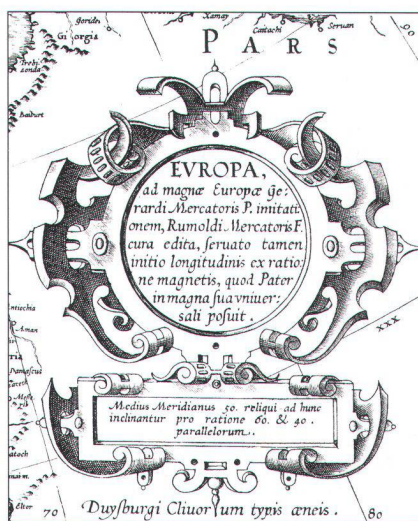 gorides
Xamay
Castachi
Seruan
Gi orgia
PARS
90
Trebi
zonda
Baiburt
EVROPA,
ad magnæ Europæ ge:
rardi Mercatoris P. imitati
onem, Rumoldi Mercatoris F.
cura edita, seruato tamen
initio longitudinis ex ratio:
ne magnetis, quod Pater
in magna sua vniuer:
sali posuit.
XXX
ntiochia
Aman
ria
Damascus
Medius Meridianus 50. reliqui ad hunc
inclinantur pro ratione 60. & 40.
parallelorum..
atach
Elter
70
80
Duysburgi Cliuorum typis æneis.